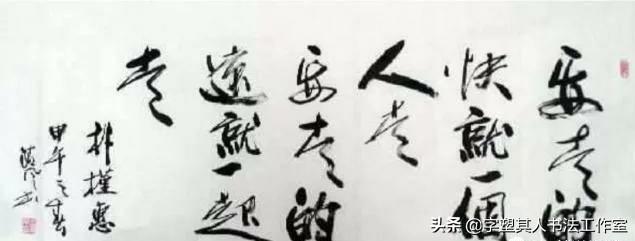 要走的
快就一個
人走
要走的
遠就一起
走
朴槿惠
甲午之春
头条 @字塑其人书法工作室